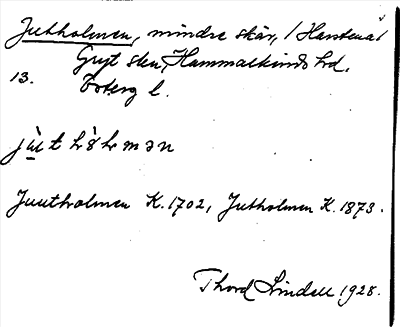 Jutholmen, mindre skär, / Harstena /
Gryt skn, Hammarkinds hd.
13. Österg l.
jùt hò̀lmən
Juutholmen K. 1702, Jutholmen K. 1873.
Thord Lindell 1928.